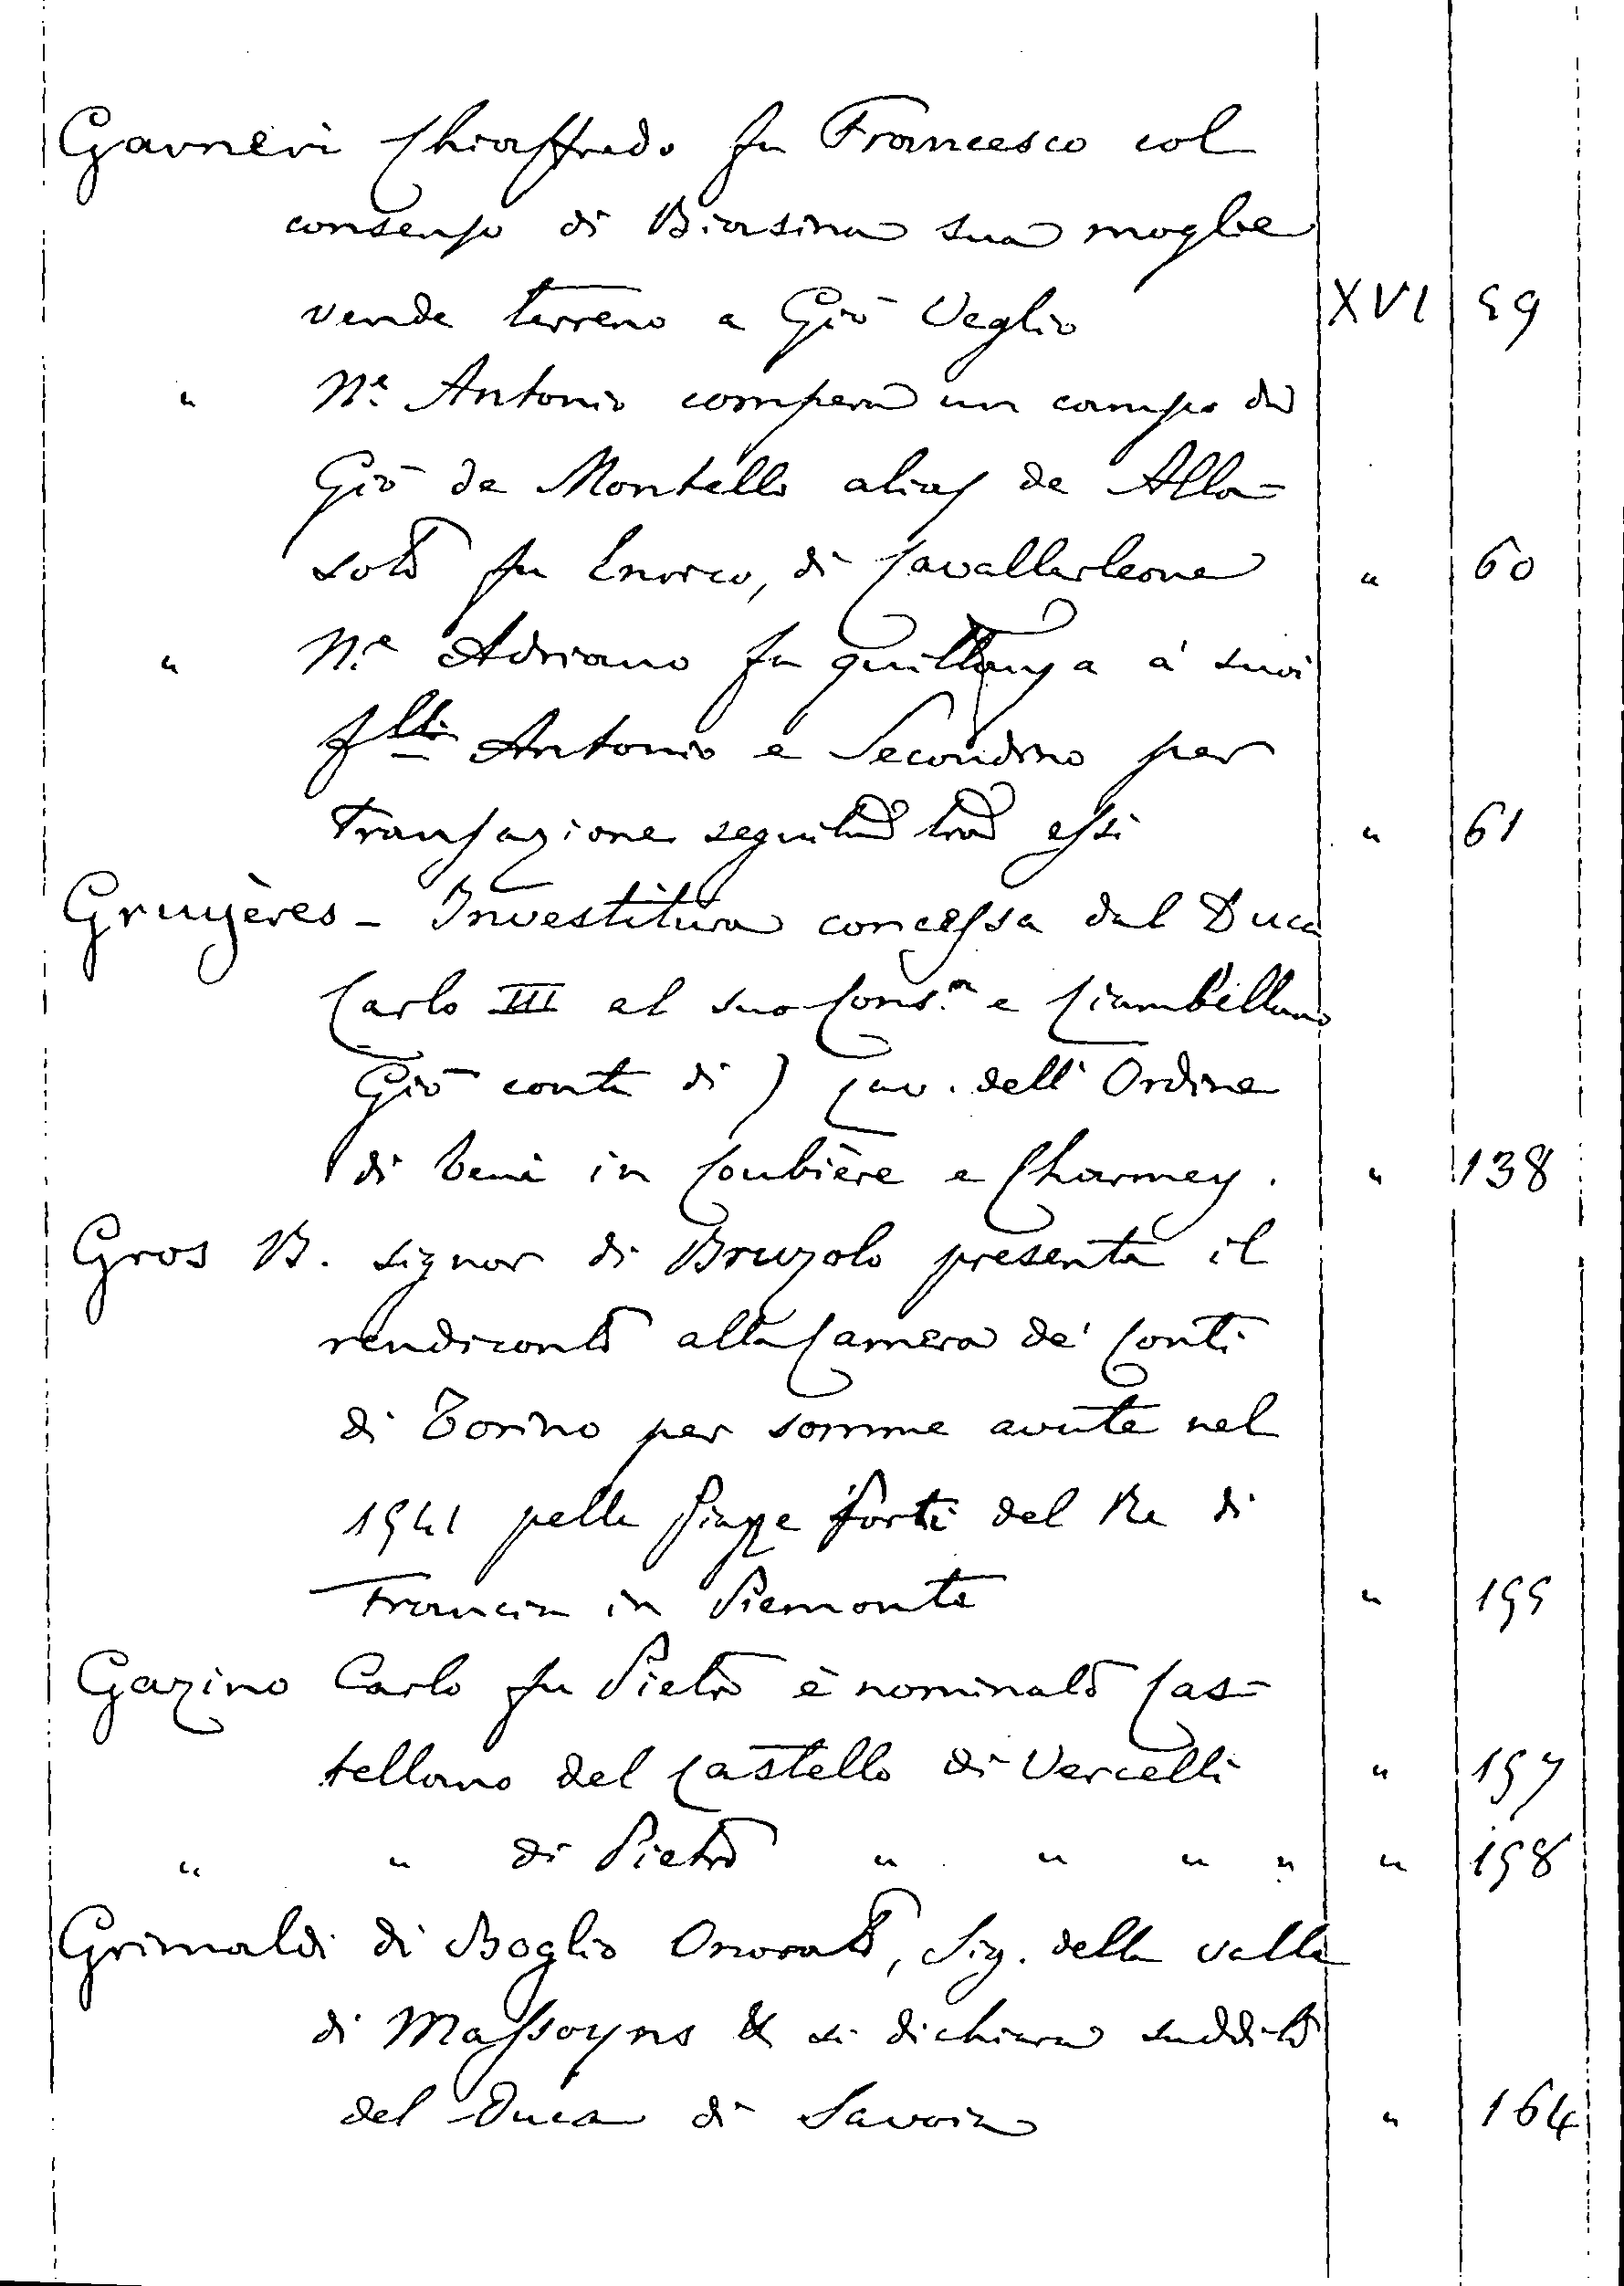 Garneri Chiaffredo fu Francesco col
consenso di Biasina sua moglie
vende terreno a Giō Veglio XVI 59
" N.e Antonio compera un campo da
Giō de Montello alias de Alla=
solo fu Enrico, di Cavallerleone " 60
" N.e Adriano fa quittanza a' suoi
f.lli Antonio e Secondino per
transazione seguita tra essi " 61
Gruyères - Investitura concessa dal Duca
Carlo III al suo Cons.re e Ciambellano
Giō conte di ) Cav. dell' Ordine
di beni in Corbière e Charmey. " 138
Gros B. signor di Bruzolo presenta il
rendiconto alla Camera de' Conti
di Torino per somme avute nel
1541 pelle Piazze forti del Re di
Francia in Piemonte " 155
Gazino Carlo fu Pietro è nominato Cas=
tellano del Castello di Vercelli " 157
" " di Pietro " " " " " 158
Grimaldi di Boglio Onorato, Sig. della valle
di Massoyns & si dichiara suddito
del Duca di Savoia " 164